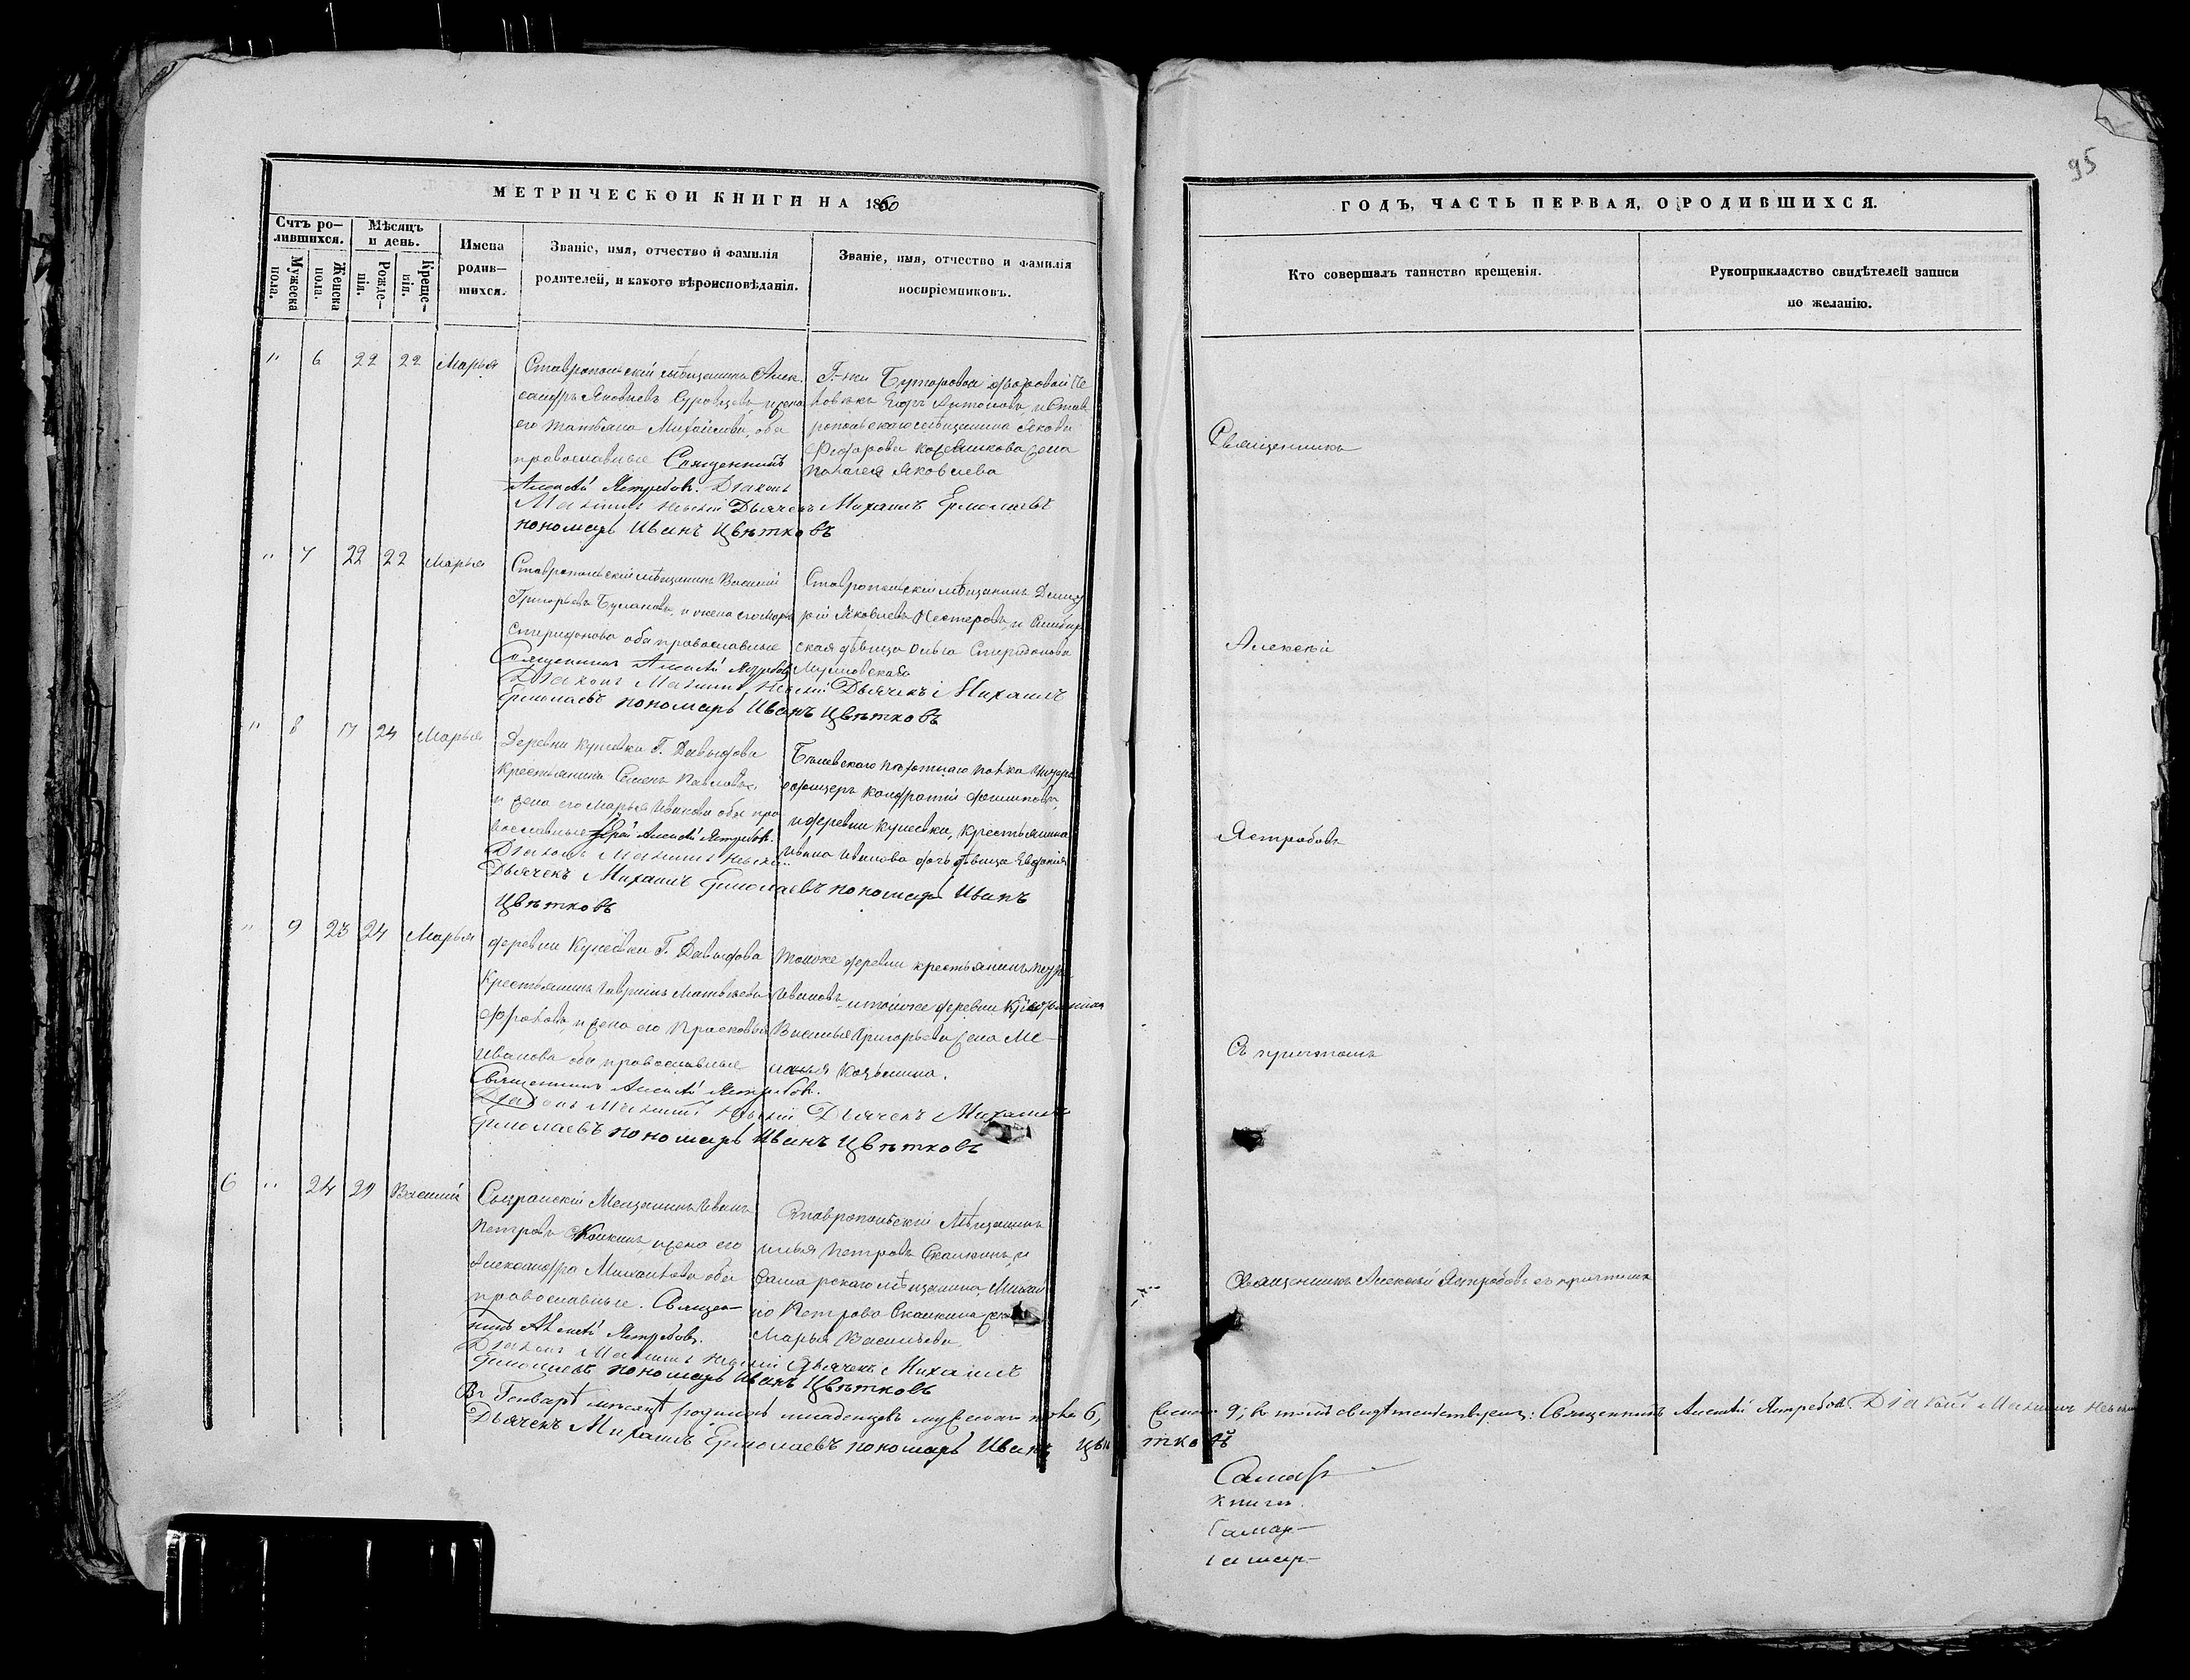 95
МЕТРИЧЕСКОЙ КНИГИ НА 1860
ГОДЪ, ЧАСТЬ ПЕРВАЯ, О РОДИВШИХСЯ.
Счтъ ро-
лившихся.
Мужеска
пола.
Женска
пола.
Мѣсяцъ
и день.
Рожде-
нія.
Креще-
нія.
Имена
родив-
шихся.
Званіе, имя, отчество и фамилія
родителей, и какого вѣроисповѣданія.
Званіе, имя, отчество и фамилія
воспріемниковъ.
Кто совершалъ таинство крещенія.
Рукоприкладство свидѣтелей записи
по желанію.
" 6 22 22 Марья
Ставропольскій мѣщанинъ Алек
сандръ Яковлевъ и жена
его Татьяна Михайлова, оба
православные Священникъ
Алексѣй Ястребовъ. Діаконъ
Невскій Дьячекъ Михаилъ Ермолаевъ
пономарь Иванъ Цвѣтковъ
Г-жи Буторовой дворовой че
ловѣкъ Егоръ Антоновъ, и Став
ропольскаго мѣщанина Якова
Федорова жена
Пелагея Яковлева
Священникъ
" 7 22 22 Марья
Ставропольскій мѣщанинъ Василій
Григорьевъ Булановъ, и жена его Марья
Спиридонова оба православные
Священникъ Алексѣй Ястребовъ
Діаконъ Невскій Дьячекъ Михаилъ
Ермолаевъ пономарь Иванъ Цвѣтковъ
Ставропольскій мѣщанинъ Дмит
рій Яковлевъ Нестеровъ, и Симбир
ская дѣвица Ольга Спиридонова
Алексѣй
" 8 17 24 Марья
Деревни Кунеевки Г. Давыдова
Крестьянинъ Семенъ Павловъ
и жена его Марья Иванова оба пра
вославные Іерей Алексѣй Ястребовъ.
Діаконъ Невскій
Дьячекъ Михаилъ Ермолаевъ пономарь Иванъ
Цвѣтковъ
Бѣлевскаго пѣхотнаго полка Унтеръ
офицеръ Кондратій Филиповъ,
и деревни Кунеевки, Крестьянина
Ивана Иванова дочь дѣвица Евдокія
Ястребовъ
" 9 23 24 Марья
деревни Кунеевки Г. Давыдова
Крестьянинъ Гаврилъ Матвѣевъ
и жена его Прасковья
Иванова оба православные
Священникъ Алексѣй Ястребовъ.
Діаконъ Невскій Дьячекъ Михаилъ
Ермолаевъ пономарь Иванъ Цвѣтковъ
Тойже деревни крестьянинъ Петръ
Ивановъ и тойже деревни Крестьянина
Василья Григорьева жена Ме-
ланья Козьмина.
Съ причтомъ
6 " 24 29 Василій
Сызранскій Мещанинъ Иванъ
Петровъ Скалкинъ, и жена его
Александра Михайлова оба
православные. Священ-
никъ Алексѣй Ястребовъ.
Діаконъ Невскій Дьячекъ Михаилъ
Ермолаевъ пономарь Иванъ Цвѣтковъ
Ставропольскій Мѣщанинъ
Илья Петровъ Скалкинъ, и
Самарскаго мѣщанина Михай
ло Петрова Скалкина жена
Марья Васильева
Священникъ Алексѣй Ястребовъ съ причтомъ
Въ Генварѣ мѣсяцѣ родилось младенцевъ мужеска пола 6, женска 9; въ томъ свидѣтельствуемъ: Священникъ Алексѣй Ястребовъ Діаконъ Невскій
Дьячекъ Михаилъ Ермолаевъ пономарь Иванъ Цвѣтковъ
Самар
книги
Самар-